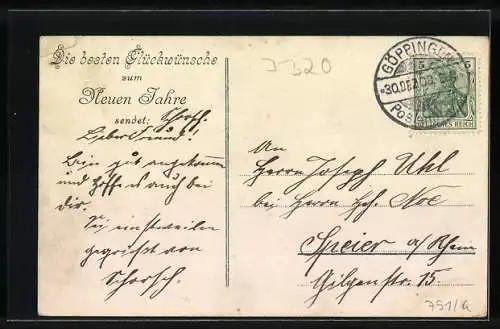 Die besten Glückwünsche
zum
Neuen Jahre
sendet: Schorsch.
Lieber Freund!
Bin gut angekommen
und hoffe es auch bei
dir.
Sei einstweilen
gegrüsst von
Schorsch.
J 320
GÖPPINGEN
30.DEZ.08
5 5
DEUTSCHES REICH
An
Herrn Joseph Uhl
bei Herrn Jos. Noe
Speier a/Rhein
Gilgenstr. 15.
751/a